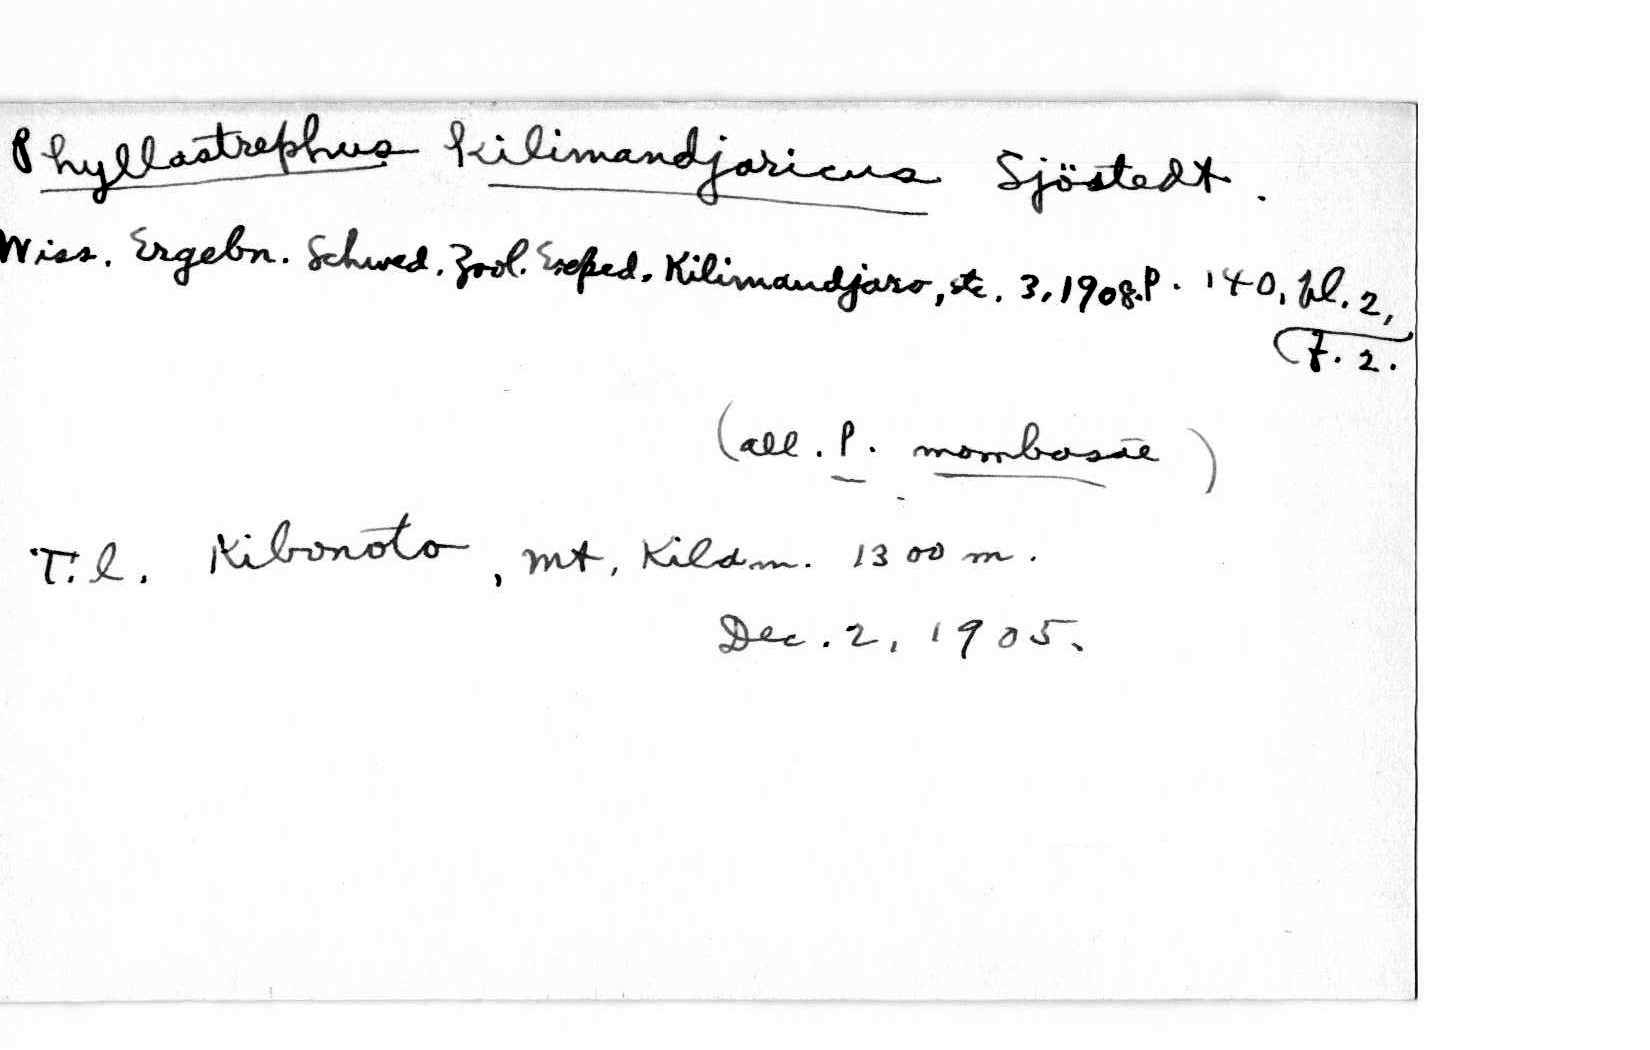 Phyllastrephus kilimandjaricus Sjöstedt.
Wiss. Ergebn. Schwed. Zool. Exped. Kilimandjaro, etc. 3, 1908. P. 140, pl. 2,
f. 2.
(all. P. mombasae)
T.l. Kibonoto, Mt. Kildm. 1300 m.
Dec. 2, 1905.